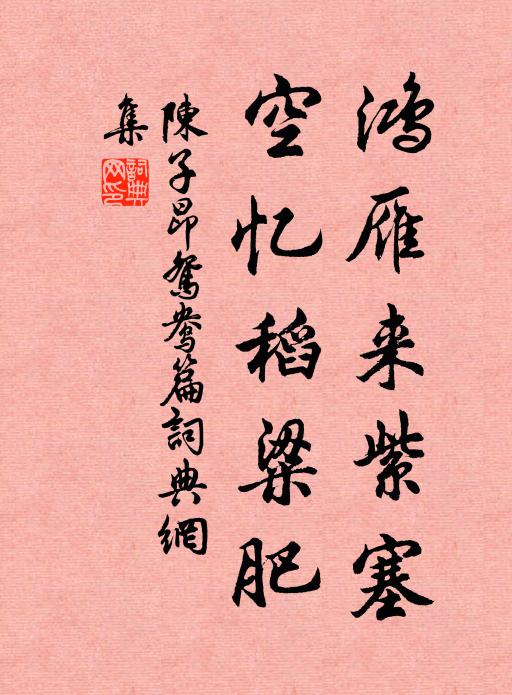 鸿雁来紫塞
空忆稻粱肥
陳子昂鴛鴦篇詞典網
集
詞典網印